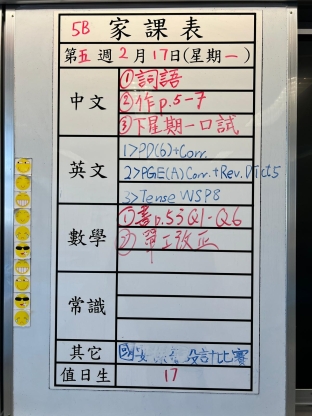 5B 家課表
第五週2月17日(星期一)
中文
①詞語
②作p.5-7
③下星期一口試
英文
1>PD(6)+Corr.
2>PGE(A)Corr.+Rev. Dict5
3>Tense WSP8
數學
①書p.53 Q1-Q6
②單工改正
常識
其它
設計比賽
值日生
17